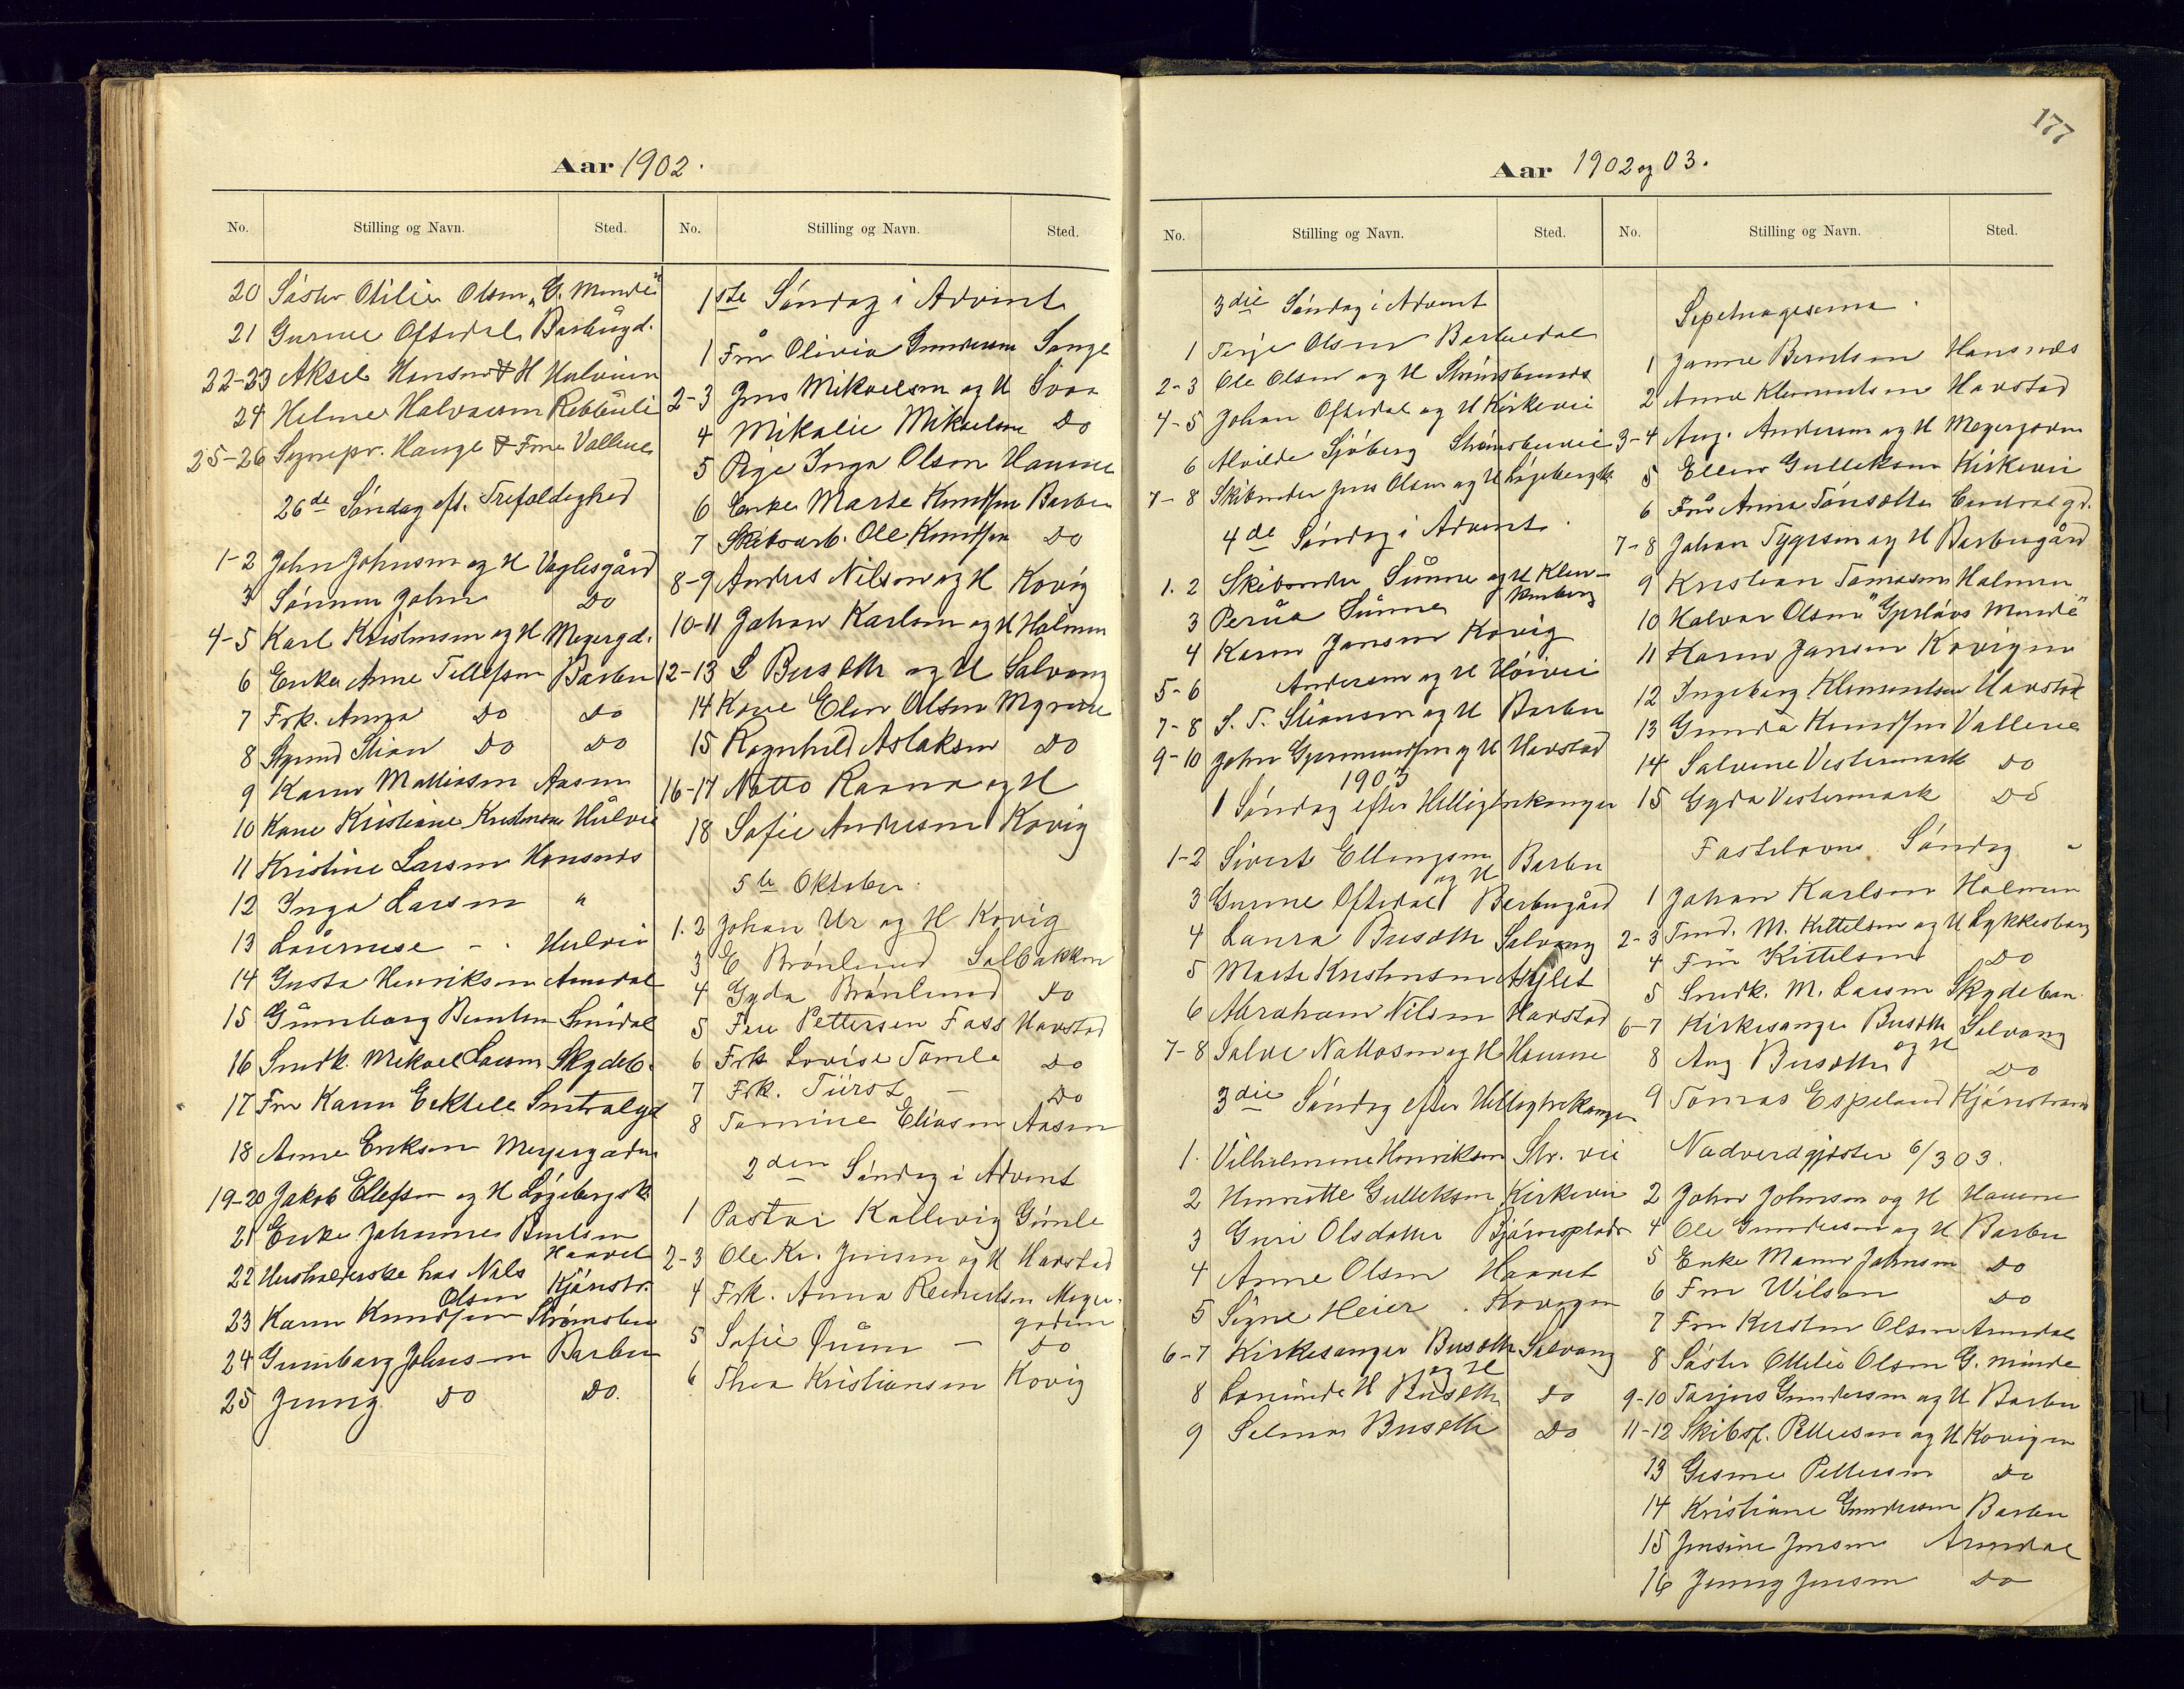 177
Aar 1902.
No. Stilling og Navn. Sted. No. Stilling og Navn. Sted.
20 Søster Otilie Olsen „G. Minde"
21 Gurine Oftedal Barbugd.
22-23 Aksel Hansen & H
24 Helme Halvorsen
25-26 Sognepr. Hauge & Frue Vallene
26de Søndag eft. Trefoldighed
1-2 John Johnsen og H Vaglesgård
3 Sønnen John Do
4-5 Karl Kristensen og H Meyergd.
6 Enke Anne Tellefsen Barbu
7 Frk. Anna Do Do
8 Stian Do Do
9 Karen Mathiasen Aasen
10 Kane Kristiane Kristensen
11 Kristine Larsen Hansnes
12 Inga Larsen "
13
14 Gusta Henriksen Arendal
15 Gunnborg Berntsen
16 Snedk. Mikael Larsen Skydeb.
17 Fru Karen
18 Anne Eriksen Meyergaden
19-20 Jakob Ellefsen og H Løgebergsk.
21 Enke Johanne Berntsen
Haavet
22 Husholderske hos Nils Kjønstr.
Olsen
23 Karen Knudsen Strømsbu
24 Gunnborg Johnsen Barbu
25 Jenny Do Do.
1ste Søndag i Advent
1 Fru Olivia Gundersen Songe
2-3 Jens Mikaelsen og H
4 Mikalie Mikaelsen Do
5 Pige Inga Olsen Havene
6 Enke Marte Knudsen Barbu
7 Skibsarb. Ole Knudsen Do
8-9 Anders Nilsen og H Kovig
10-11 Johan Karlsen og H Holmen
12-13 L Buseth og H Solvang
14 Kane Elen Olsen Myrene
15 Ragnhild Aslaksen Do
16-17 Natto Raana og H
18 Sofie Andersen Kovig
5te Oktober.
1.2 Johan Ur og H Kovig
3 E Brønlund Solbakken
4 Gyda Brønlund Do
5 Fru Pettersen Foss Havstad
6 Frk Lovise Tomle Do
7 Frk. Fürst – Do
8 Tomine Eliasen Aasen
2den Søndag i Advent
1 Pastor Kallevig Gimle
2-3 Ole Kr. Jensen og H Havstad
4 Frk. Anna Reinertsen Meyer-
gaden
5 Sofie – Do
6 Thea Kristiansen Kovig
Aar 1902 og 03.
No. Stilling og Navn. Sted. No. Stilling og Navn. Sted.
3die Søndag i Advent
1 Terje Olsen Barbudal
2-3 Ole Olsen og H Strømsbunes
4-5 Johan Oftedal og H Kirkevei
6 Alvilde Sjøberg Strømsbuvei
7-8 Skibsreder Jens Olsen og H Løgebergsk.
4de Søndag i Advent.
1.2 Skibsreder Sünne og H
3 Sünne
4 Karen Jansen Kovig
5-6 Andersen og H
7-8 S. T. Stiansen og H Barbu
9-10 John Gjermundsen og H Havstad
1903
1 Søndag efter Helligtrekonger
1-2 Sivert Ellingsen Barbu
og H
3 Gurine Oftedal Barbugård
4 Laura Buseth Solvang
5 Marte Kristensen Asylet
6 Abraham Nilsen Havstad
7-8 Salve Nattosen og H Havene
3die Søndag efter Helligtrekonger
1. Vilhelmine Henriksen Str. vei
2 Henriette Gulleksen Kirkevei
3 Guri Olsdatter Bjørnsplads
4 Anne Olsen Haavet
5 Signe Heier. Kovigen
6-7 Kirkesanger Buseth Solvang
og H
8 H Buseth Do
9 Selma Buseth Do
1 Janne Berntsen Hansnæs
2 Anne Klementsen Havstad
3-4 Aug. Andersen og H Meyergaden
5 Ellen Gulleksen Kirkevei
6 Fru Anna Tønseth Centralgd.
7-8 Johan Tygesen og H Barbugård
9 Kristian Tomasen Holmen
10 Halvor Olsen Minde"
11 Karen Jansen Kovigen
12 Ingeborg Klementsen Havstad
13 Gunda Knudsen Vallene
14 Salvine Vestermark Do
15 Gyda Vestermark Do
Fastelavns Søndag
1 Johan Karlsen Holmen
2-3 M. Kittelsen og H Lykkesborg
4 Fru Kittelsen Do
5 Snedk. M. Larsen Skydeban
6-7 Kirkesanger Buseth Solvang
og H
8 Aug Buseth Do
9 Tomas Espeland Kjønstrand
Nadverdgjæster 6/3 03.
2 John Johnsen og H Havene
4 Ole Gundersen og H Barbu
5 Enke Johnsen Do
6 Fru Wilson Do
7 Fru Kirsten Olsen Arendal
8 Søster Ottilie Olsen G. Minde
9-10 Tarjus Gundersen og H Barbu
11-12 Skibsf. Pettersen og H Kovigen
13 Gesine Pettersen Do
14 Kristiane Gundersen Barbu
15 Jensine Jensen Arendal
16 Jenny Jensen Do